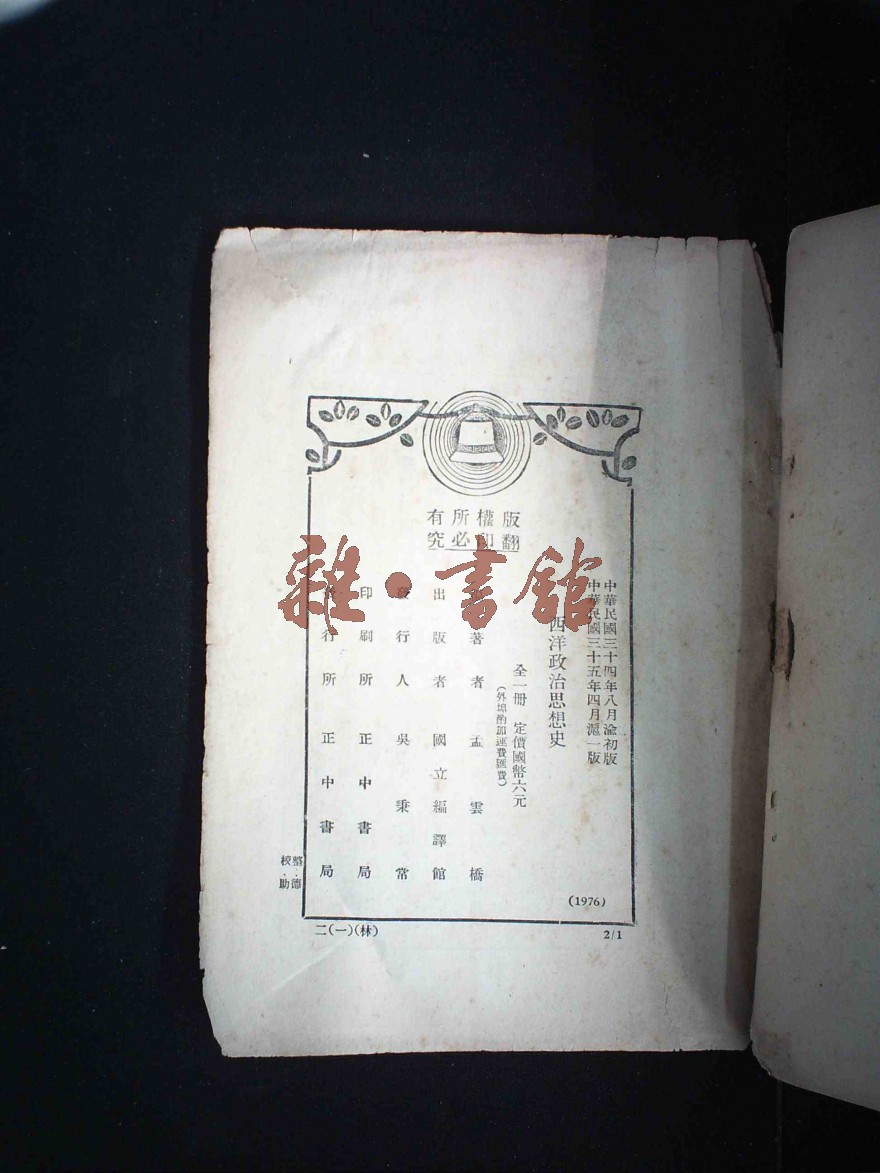 版權所有
翻印必究
中華民國三十四年八月渝初版
中華民國三十五年四月滬一版
西洋政治思想史
全一冊 定價國幣六元
(外埠酌加運費匯費)
著者 孟雲橋
出版者 國立編譯館
發行人 吳秉常
印刷所 正中書局
發行所 正中書局
(1976)
校·助
二(一)(林)
2/1
雜·書館